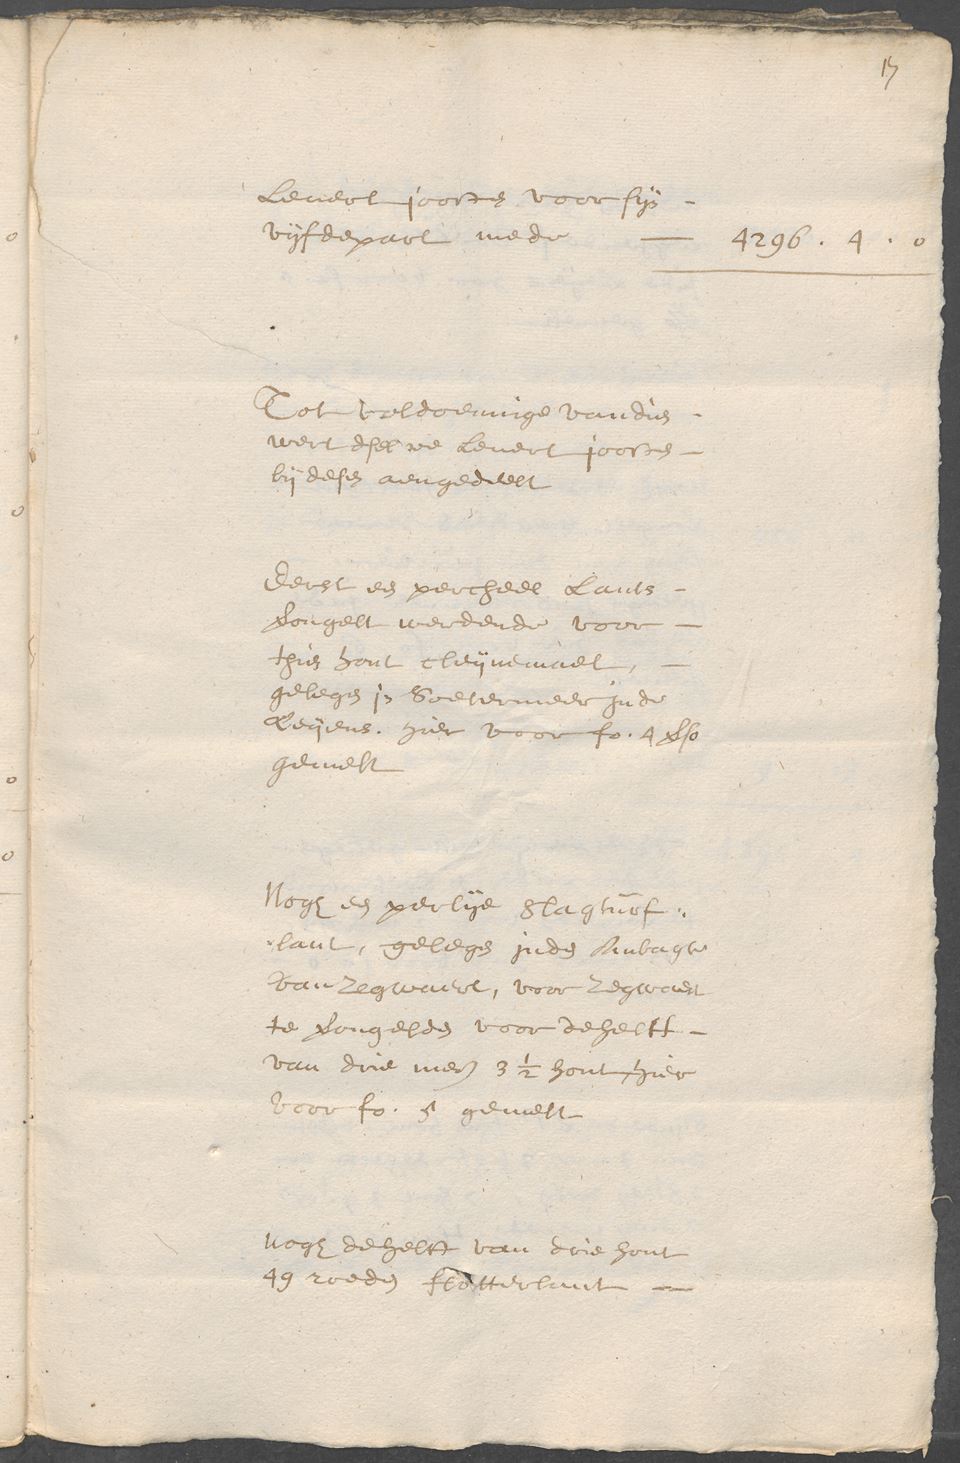 17
Leenert joosten voor sijn
vijfdepart mede — 4296 . 4 . 0
Tot voldoeninge van dien
wert deselve Leenert joosten
bij desen aengedeelt
Eerst een percheel Lants
gongelt werdende voor
thien hont cleijne maet,
gelegen in Soetermeer inde
Leijens. hier voor fo. 4
gemelt
Noch een pertije slagturf
lant, gelegen inden Ambagte
van Zegwaert, voor Zegwaert
te gongelden voor de helft
van drie mergen 3 ½ hont hier
voor fo. 5 gemelt
noch de helft van drie hont
49 roeden slotterlant —